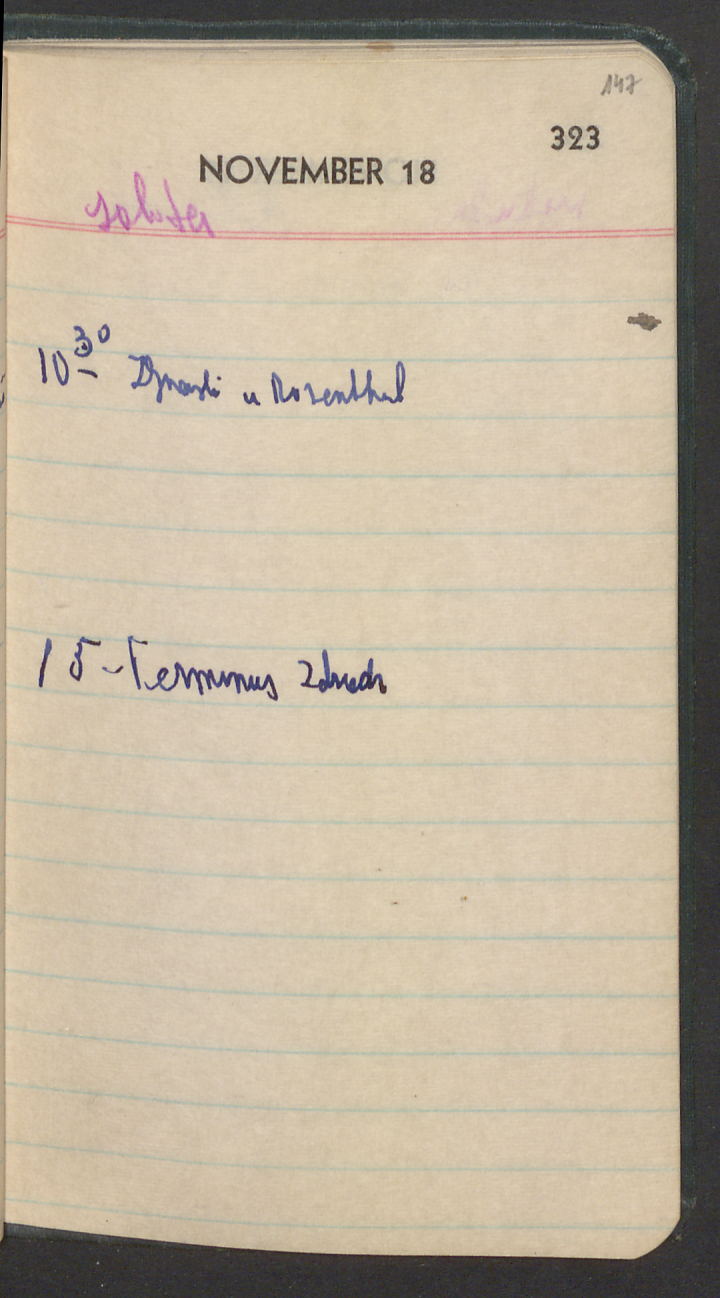 147
323
NOVEMBER 18
sobota
10 30 Dynasti u Rosenthal
15 - Terminus